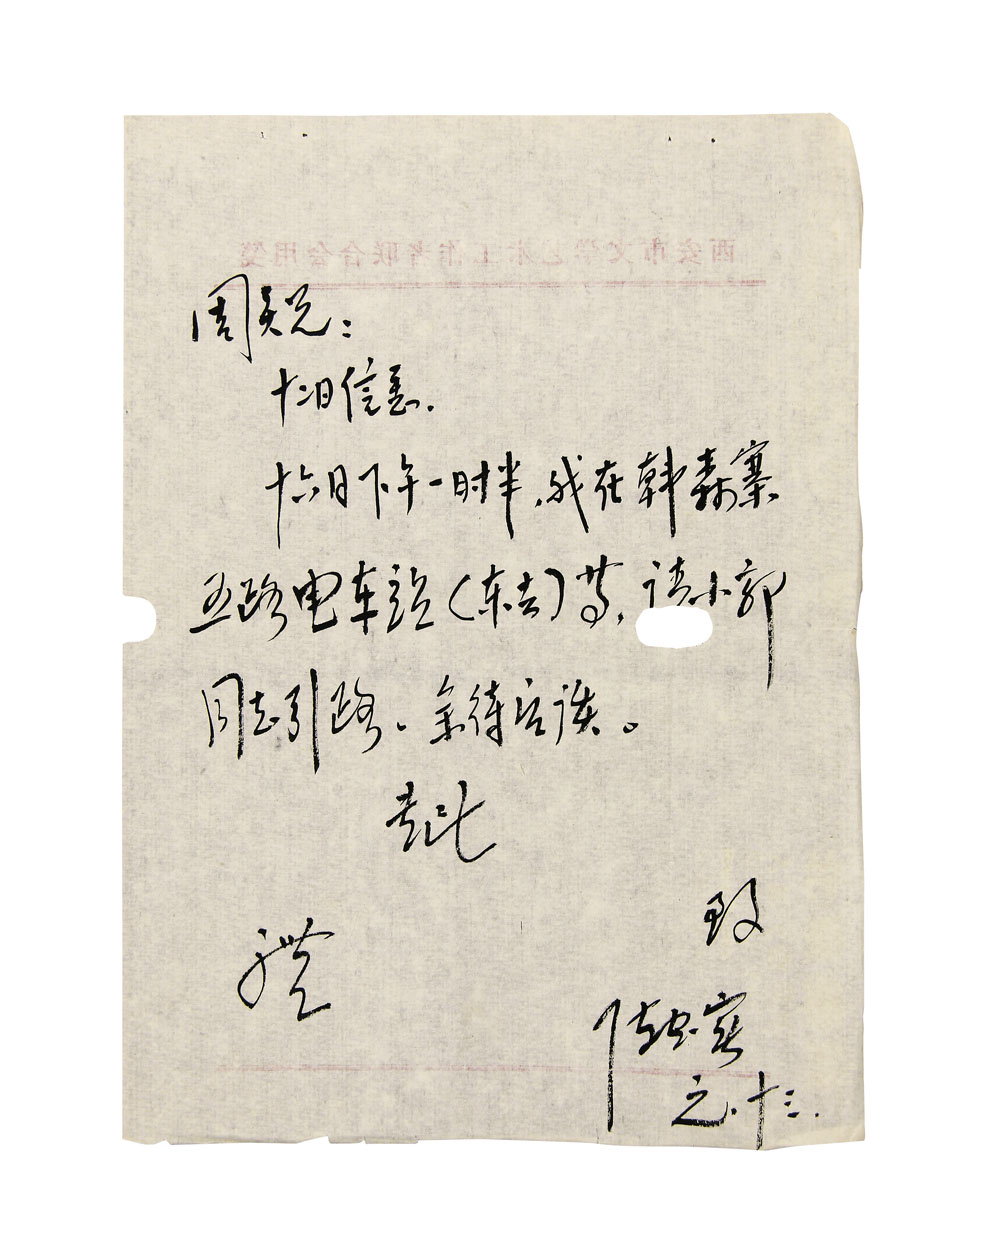 西安市文学艺术工作者联合会用笺
周 兄：
十二日信悉.
十六日下午一时半,我在韩森寨
五路电车站(东去)等,请小郭
同志引路。余待后谈。
专此
致
礼
陈忠实
元.十三.